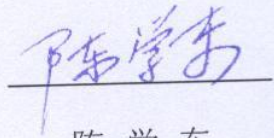 陈学东
陈 学 东